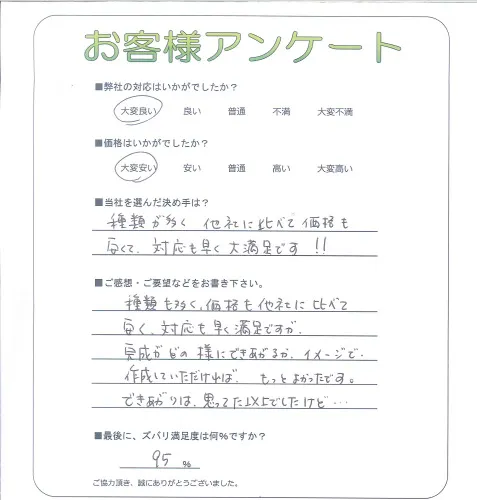 お客様アンケート
■弊社の対応はいかがでしたか？
大変良い 良い 普通 不満 大変不満
■価格はいかがでしたか？
大変安い 安い 普通 高い 大変高い
■当社を選んだ決め手は？
種類が多く 他社に比べて価格も
安くて、対応も早く大満足です!!
■ご感想・ご要望などをお書き下さい。
種類も多く、価格も他社に比べて
安く、対応も早く満足ですが、
完成がどの様にできあがるか、イメージで
作成していただければ、もっとよかったです。
できあがりは、思ってた以上でしたけど…
■最後に、ズバリ満足度は何%ですか？
95 %
ご協力頂き、誠にありがとうございました。